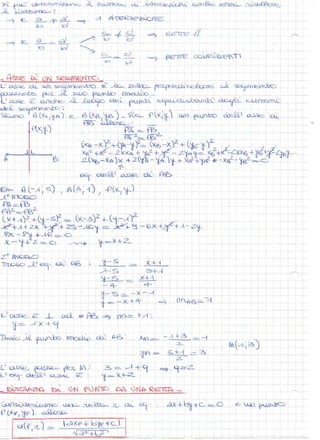 Si può determinare il numero di intersezioni anche senza risolvere
il sistema:
→ se a/a' ≠ b/b' → 1 INTERSEZIONE
→ se a/a' = b/b' c/c' ≠ b/b' → RETTE //
c/c' = b/b' → RETTE COINCIDENTI
ASSE DI UN SEGMENTO
L'asse di un segmento è la retta perpendicolare al segmento
passante per il suo punto medio.
L'asse è anche il luogo dei punti equidistanti dagli estremi
del segmento:
Siano A(xA, yA) e B(xB, yB). Sia P(x,y) un punto dell'asse di
AB allora:
P(x,y)
PA = PB
PA² = PB²
(xA-x)²+(yA-y)² = (xB-x)²+(yB-y)²
A B
eq. dell'asse di AB
Es. A(-1,5), B(3,1), P(x,y)
1° MODO
PA=PB
PA²=PB²
(x+1)²+(y-5)² = (x-3)²+(y-1)²
x²+1+2x+y²+25-10y = x²+9-6x+y²+1-2y
8x-8y+16=0
x-y+2=0 → y=x+2
2° MODO
Trovo l'eq. di AB: y-5/1-5 = x+1/3+1
y-5/-4 = x+1/4
y-5=-x-1
y=-x+4 → mAB=-1
L'asse è ⊥ ad AB → m=+1.
y=1x+q
Trovo il punto medio di AB xM = -1+3/2 = 1
yM = 5+1/2 = 3
M(1,3)
L'asse passa per M: 3=1+q → q=2
L'eq. dell'asse è: y=x+2
DISTANZA DI UN PUNTO DA UNA RETTA
Consideriamo una retta r di eq. ax+by+c=0 e un punto
P(xP, yP) allora
d(P,r) = |axP+byP+c|/√a²+b²